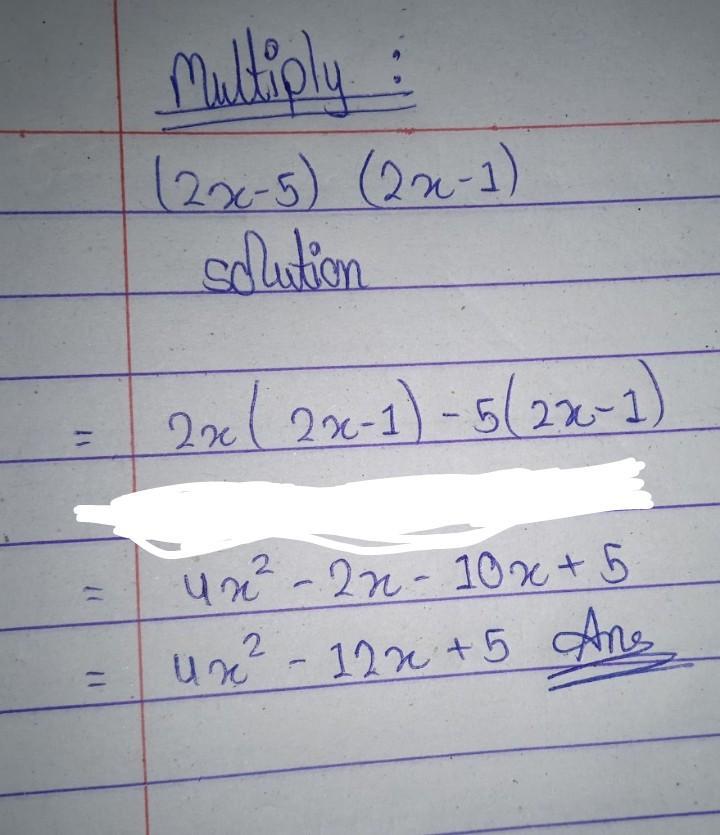 Multiply :
(2x-5) (2x-1)
solution
= 2x( 2x-1) - 5(2x-1)
= 4x² - 2x - 10x + 5
= 4x² - 12x + 5 Ans